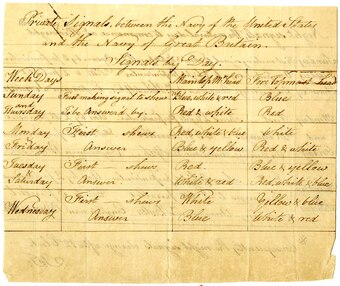 Private Signals, between the Navy of the United States
and the Navy of Great Britain.
Signals by Day.
Week Days Main Top Mt Head Fore Topmast Head
Sunday First making signal to shew Blue, white & red Blue
and
Thursday To be Answered by. Red & white Red
Monday First shews Blue, white & red White
Friday Answer Blue & yellow Red & white
Tuesday First shews Red Blue & yellow
&
Saturday Answer White & red Red, white & blue
Wednesday First shews White Yellow & blue
Answer Blue White & red